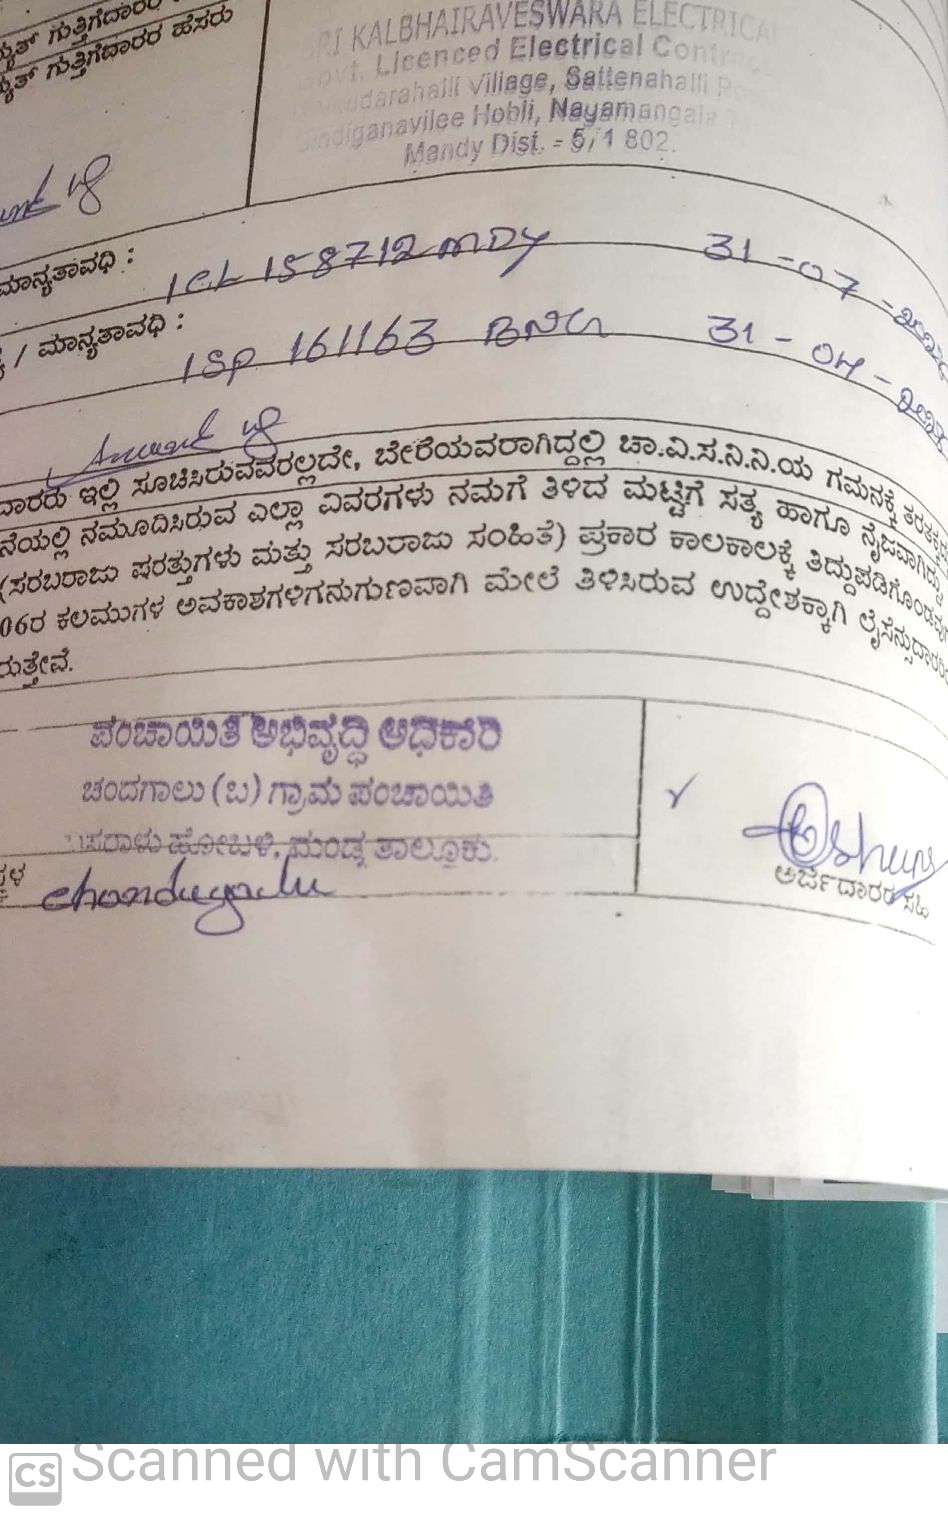 ಗುತ್ತಿಗೆದಾರರ
ಗುತ್ತಿಗೆದಾರರ ಹೆಸರು
SRI KALBHAIRAVESWARA ELECTRICAL
Govt. Licenced Electrical Contr
Village, Sattenahalli
Hobli, Nagamangala
Mandy Dist. - 571 802.
ಮಾನ್ಯತಾವಧಿ : 1CL 158712 MDY 31-07-
/ ಮಾನ್ಯತಾವಧಿ : 1SP 161163 BNG 31-04-
ದಾರರು ಇಲ್ಲಿ ಸೂಚಿಸಿರುವವರಲ್ಲದೇ, ಬೇರೆಯವರಾಗಿದ್ದಲ್ಲಿ ಚಾ.ವಿ.ಸ.ನಿ.ನಿ.ಯ ಗಮನಕ್ಕೆ
ನೆಯಲ್ಲಿ ನಮೂದಿಸಿರುವ ಎಲ್ಲಾ ವಿವರಗಳು ನಮಗೆ ತಿಳಿದ ಮಟ್ಟಿಗೆ ಸತ್ಯ ಹಾಗೂ ನೈಜವಾಗಿದ್ದು
(ಸರಬರಾಜು ಷರತ್ತುಗಳು ಮತ್ತು ಸರಬರಾಜು ಸಂಹಿತೆ) ಪ್ರಕಾರ ಕಾಲಕಾಲಕ್ಕೆ
06ರ ಕಲಮುಗಳ ಅವಕಾಶಗಳಿಗನುಗುಣವಾಗಿ ಮೇಲೆ ತಿಳಿಸಿರುವ ಉದ್ದೇಶಕ್ಕಾಗಿ
ರುತ್ತೇವೆ.
ಪಂಚಾಯಿತಿ ಅಭಿವೃದ್ಧಿ ಅಧಿಕಾರಿ
ಚಂದಗಾಲು (ಬ) ಗ್ರಾಮ ಪಂಚಾಯಿತಿ
ಬಸರಾಳು ಹೋಬಳಿ, ಮಂಡ್ಯ ತಾಲ್ಲೂಕು.
chandugalu
ಅರ್ಜಿದಾರರ ಸಹಿ
CS Scanned with CamScanner